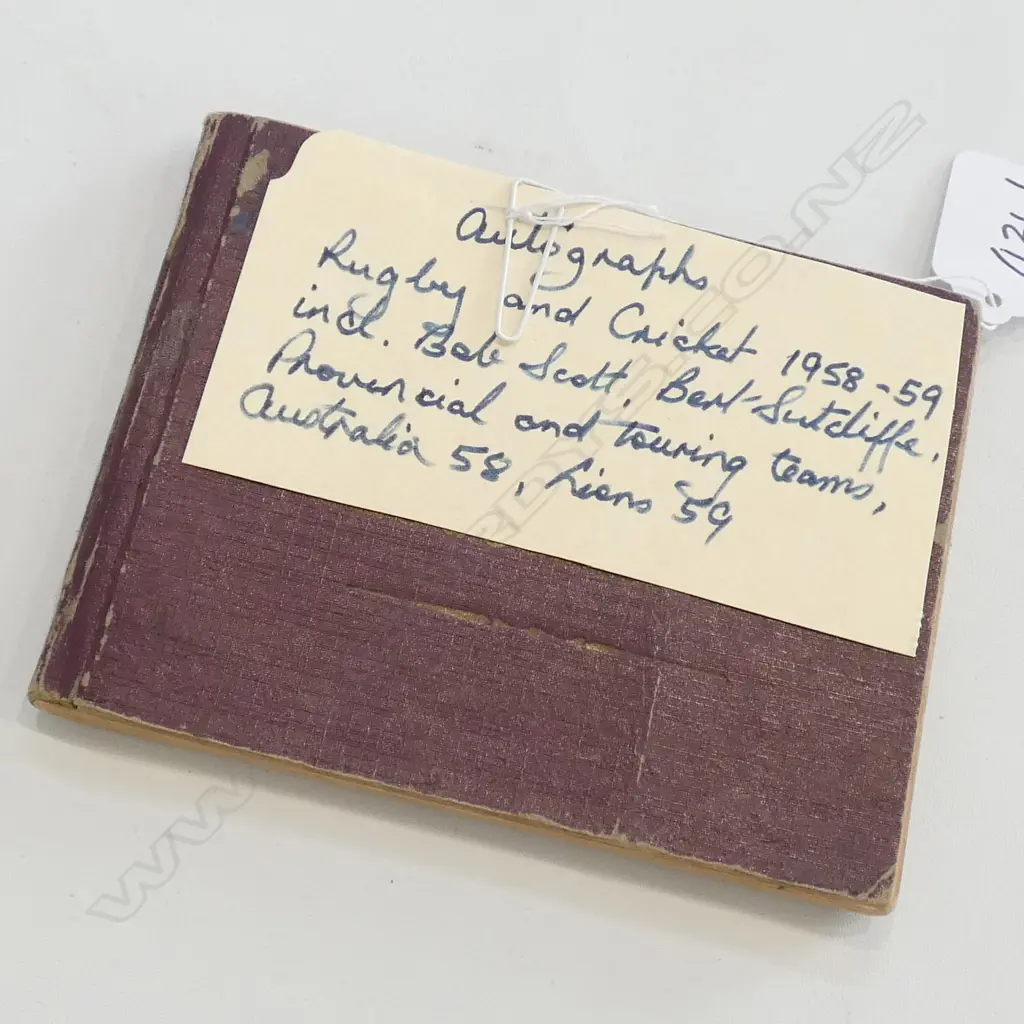 Autographs
Rugby and Cricket 1958-59
incl. Bob Scott, Bert Sutcliffe,
Provincial and touring teams,
Australia 58, Lions 59